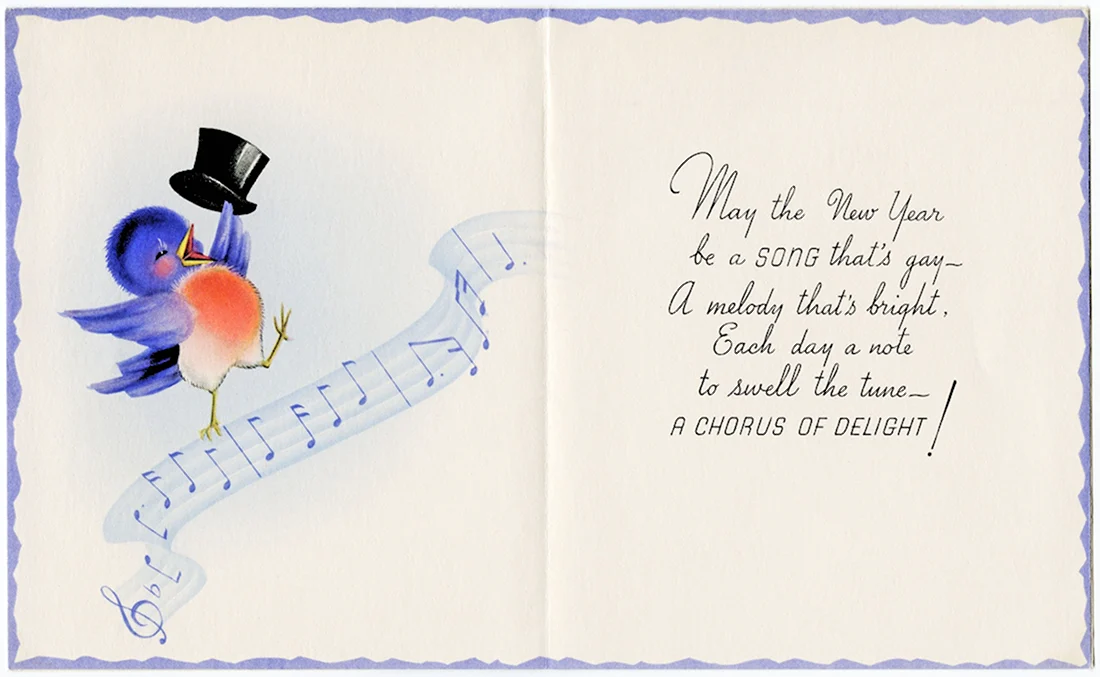 May the New Year
be a SONG that's gay—
A melody that's bright,
Each day a note
to swell the tune—
A CHORUS OF DELIGHT!